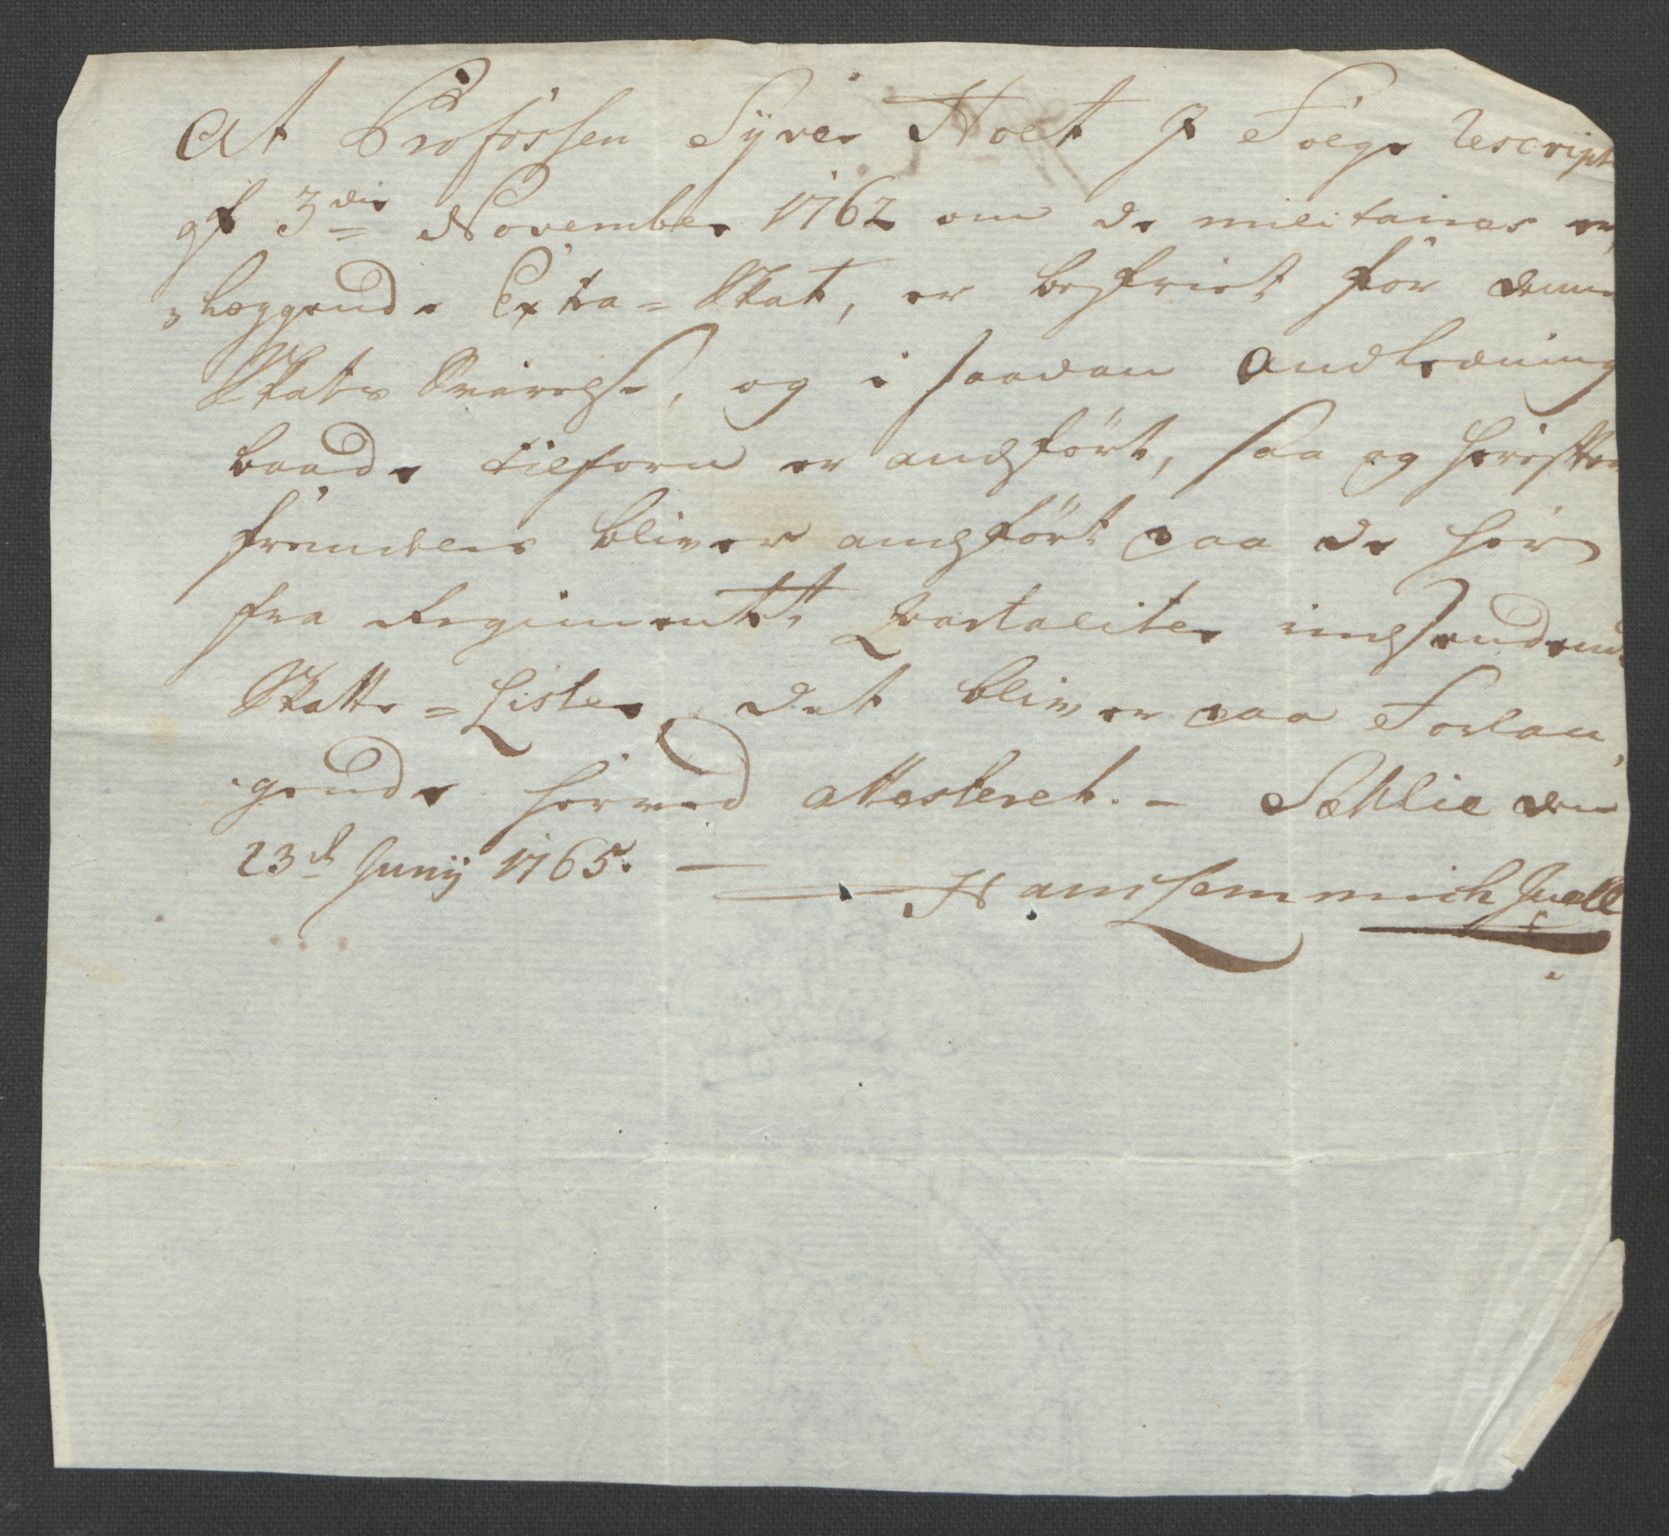 At Profossen Syver Holt J Følge Rescript
af 3die November 1762 om de militaires er,
læggende Extra=Skat, er befriet for denne
Skats Svarelse, og i saadan Andledning
baade tilforn er andført, saa og herefter
fremdeles bliver andført paa de her
fra Regimentet Qvartaliter indsendende
Skatte=Lister det bliver paa Forlan,
gende herved attesteret. - Sæhlie den
23de Junij 1765. —
Hans Lemmich Juell